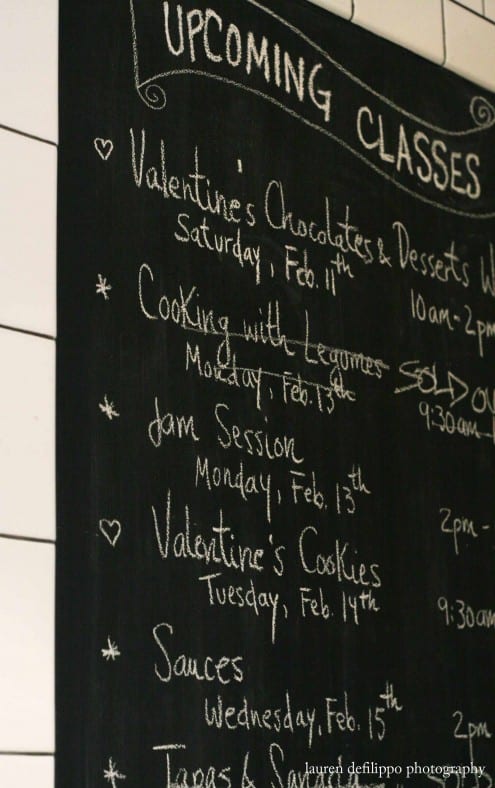 UPCOMING CLASSES
Valentine's Chocolates & Desserts
Saturday, Feb. 11th
10am-2pm
Cooking with Legumes SOLD
Monday, Feb. 13th
9:30am
Jam Session
Monday, Feb. 13th
2pm-
Valentine's Cookies
Tuesday, Feb. 14th
9:30am
Sauces
Wednesday, Feb. 15th
2pm
Tapas &
lauren defilippo photography